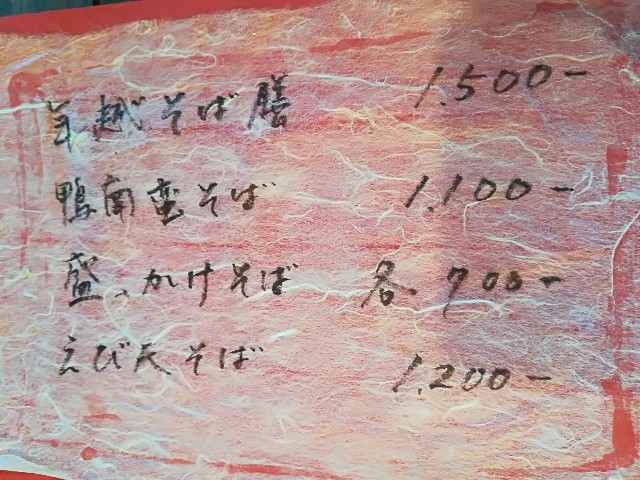 年越そば膳 1.500-
鴨南蛮そば 1.100-
盛、かけそば 各 700-
えび天そば 1.200-